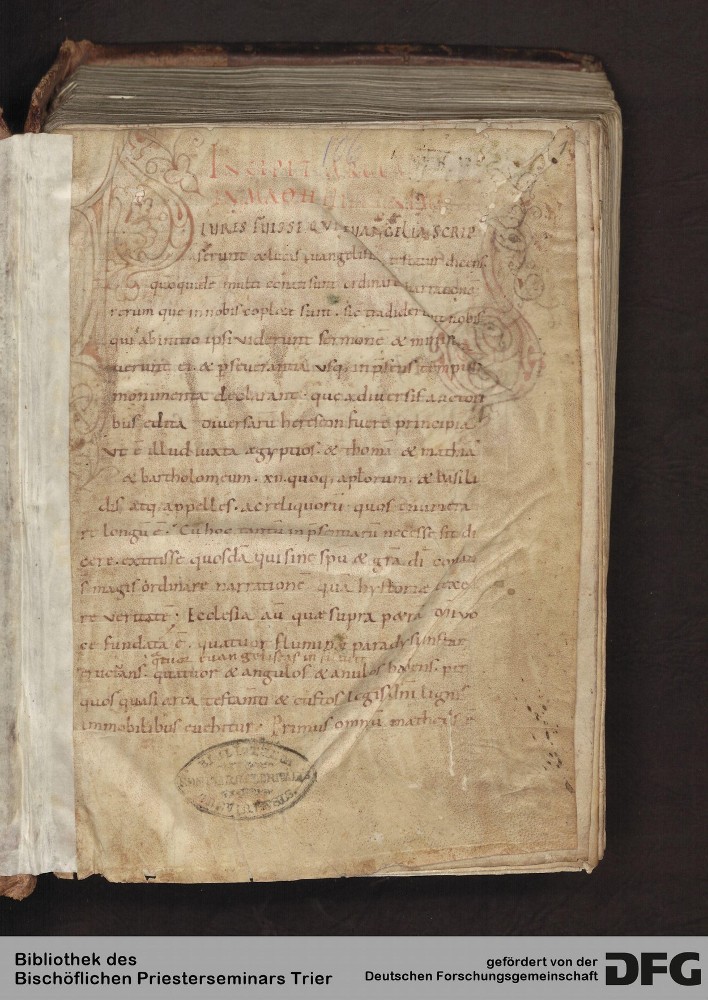 INCIPIT
IN MATH
LURES FUISSE QUI EUANGELIA SCRIP
serunt & lucas euangelista testatur dicens
quoquidē multi conati sunt ordinare narrationē
rerum que in nobis cōplete sunt. sic tradiderunt nobis
qui ab initio ipsi viderunt sermonē & minis
& pseuerantia usq; in p̄sens tempus
monumenta declarant. que a diversis auctori
bus edita diversarū heresum fuere principia
ut ē illud iuxta ægyptios. & thomā & mathiā
& bartholomeum. xii. quoq; aplorum. & basili
dis atq; appelles. ac reliquorū quos enumera
re longū ē. Cū hoc tantū in p̄sentiarū necesse sit di
cere. extitisse quosdā qui sine spu & grā dī conati
s magis ordinare narrationē quā hystoriæ texe
re veritatē. Ecclesia aū quæ supra petrā
ce fundata ē. quatuor flumina paradysi instar
quatuor euangelistas
eructans. quatuor & angulos & anulos habens. per
quos quasi arca testamti & custos legis dni lignis
immobilibus euehitur. Primus omniū matheus ē
Bibliothek des
Bischöflichen Priesterseminars Trier
gefördert von der
Deutschen Forschungsgemeinschaft
DFG